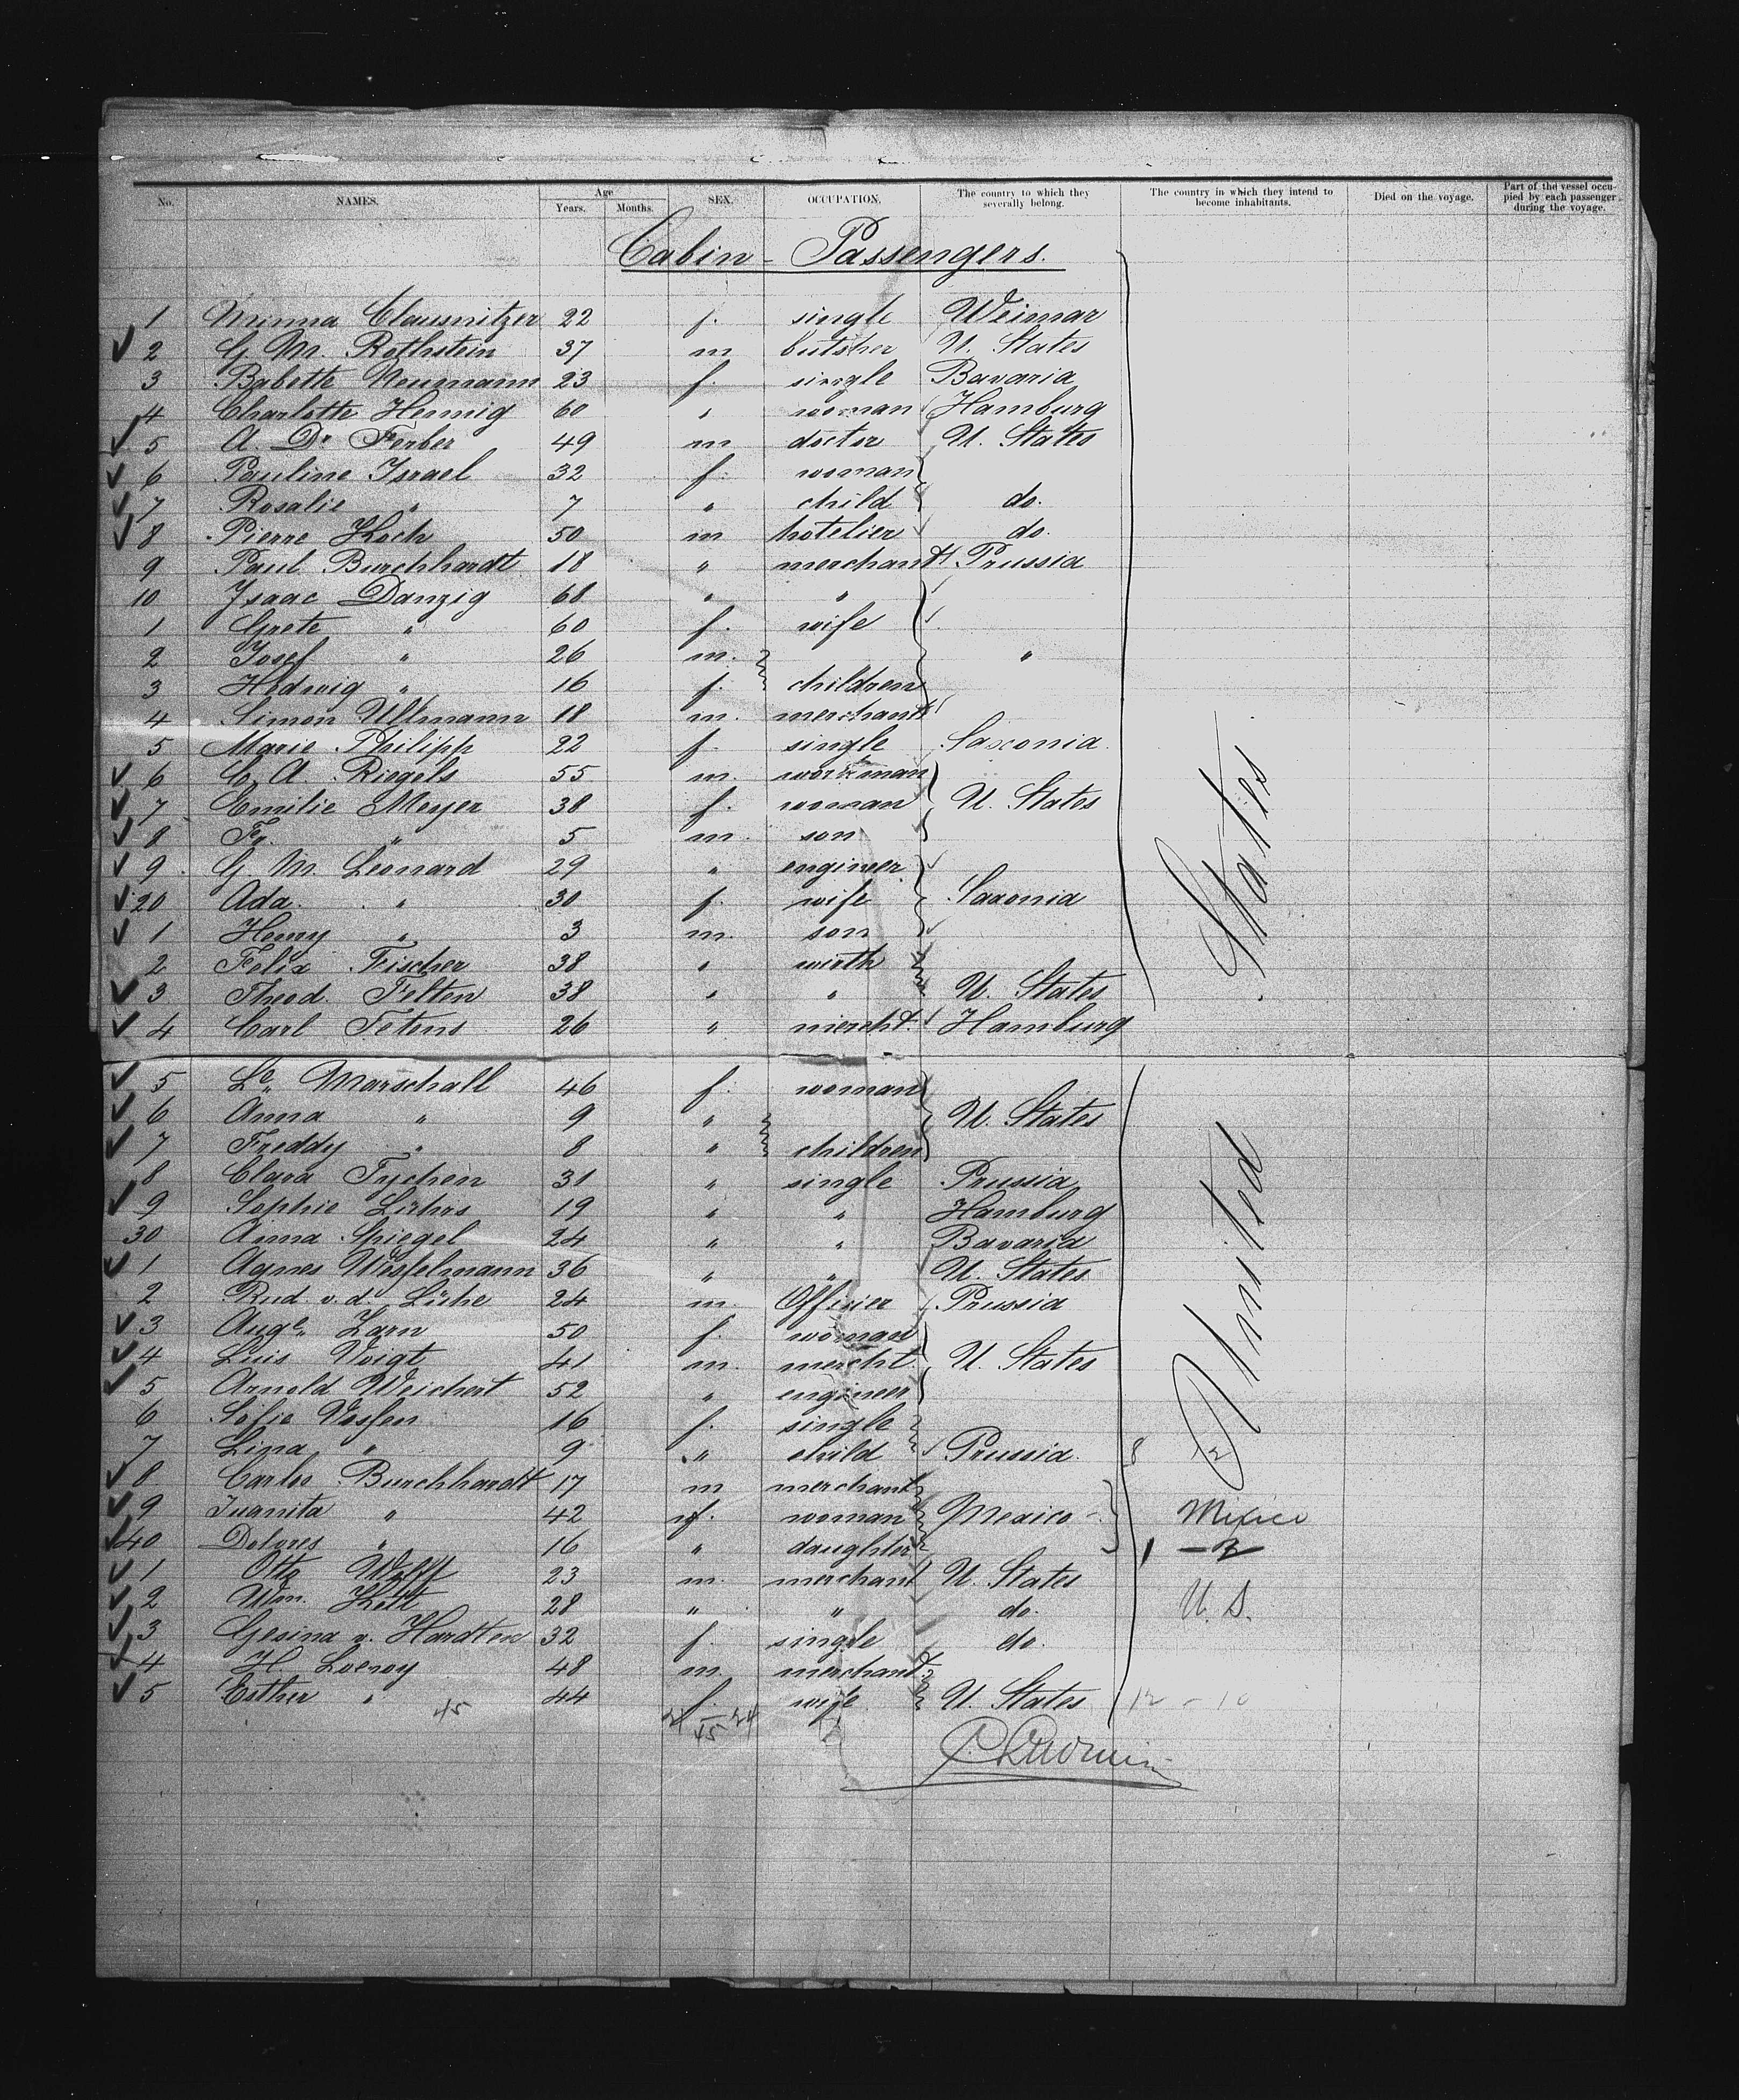 No. NAMES. Age Years. Months. SEX. OCCUPATION. The country to which they severally belong. The country in which they intend to become inhabitants. Died on the voyage. Part of the vessel occupied by each passenger during the voyage.
Cabin - Passengers.
1 Minna Clausnitzer 22 f. single Weimar
2 G. M. Rothstein 37 m butsher U. States
3 Babette Neumann 23 f. single Bavaria
4 Charlotte Hennig 60 " woman Hamburg
5 A Dr Ferber 49 m doctor U. States
6 Pauline Israel 32 f. woman
7 Rosalie " 7 " child do.
8 Pierre Koch 50 m hotelier do.
9 Paul Burchhardt 18 " merchant Prussia
10 Isaac Danzig 68 " "
1 Grete " 60 f. wife
2 Josef " 26 m. "
3 Hedwig " 16 f. children
4 Simon Ullmann 18 m. merchant
5 Marie Philipp 22 f. single Saxonia
6 C. A. Riegels 55 m. workman
7 Emilie Meyer 38 f. woman U. States
8 Fr. " 5 m. son
9 G. M. Leonard 29 " engineer
20 Ada " 30 f. wife Saxonia
1 Henry " 3 m. son
2 Felix Fischer 38 " wirth
3 Theod. Felten 38 " " U. States
4 Carl Tetens 26 " mercht Hamburg
5 Marschall 46 f. woman
6 Anna " 9 " U. States
7 Freddy " 8 " children
8 Clara Tychen 31 " single Prussia
9 Sophie Lührs 19 " " Hamburg
30 Anna Spiegel 24 " " Bavaria
1 Agnes Wesselmann 36 " " U. States
2 Rud v. d. Lühe 24 m. Officier Prussia
3 Auge Zarn 50 f. woman
4 Luis Voigt 41 m. mercht. U. States
5 Arnold Weichert 52 " engineer
6 Sofie Vossen 16 f. single
7 Lina " 9 " child Prussia.
8 Carlos Burchhardt 17 m merchant
9 Juanita " 42 f. woman Mexico Mexico
40 Dolores " 16 " daughter
1 Otto Wolff 23 m. merchant U. States
2 Wm. Kott 28 " " do. U. S.
3 Gesina v. Hardten 32 f. single do.
4 H. Loeroy 48 m. merchant
5 Esther " 44 f. wife U. States 12 - 10
45 21 24
45
United States